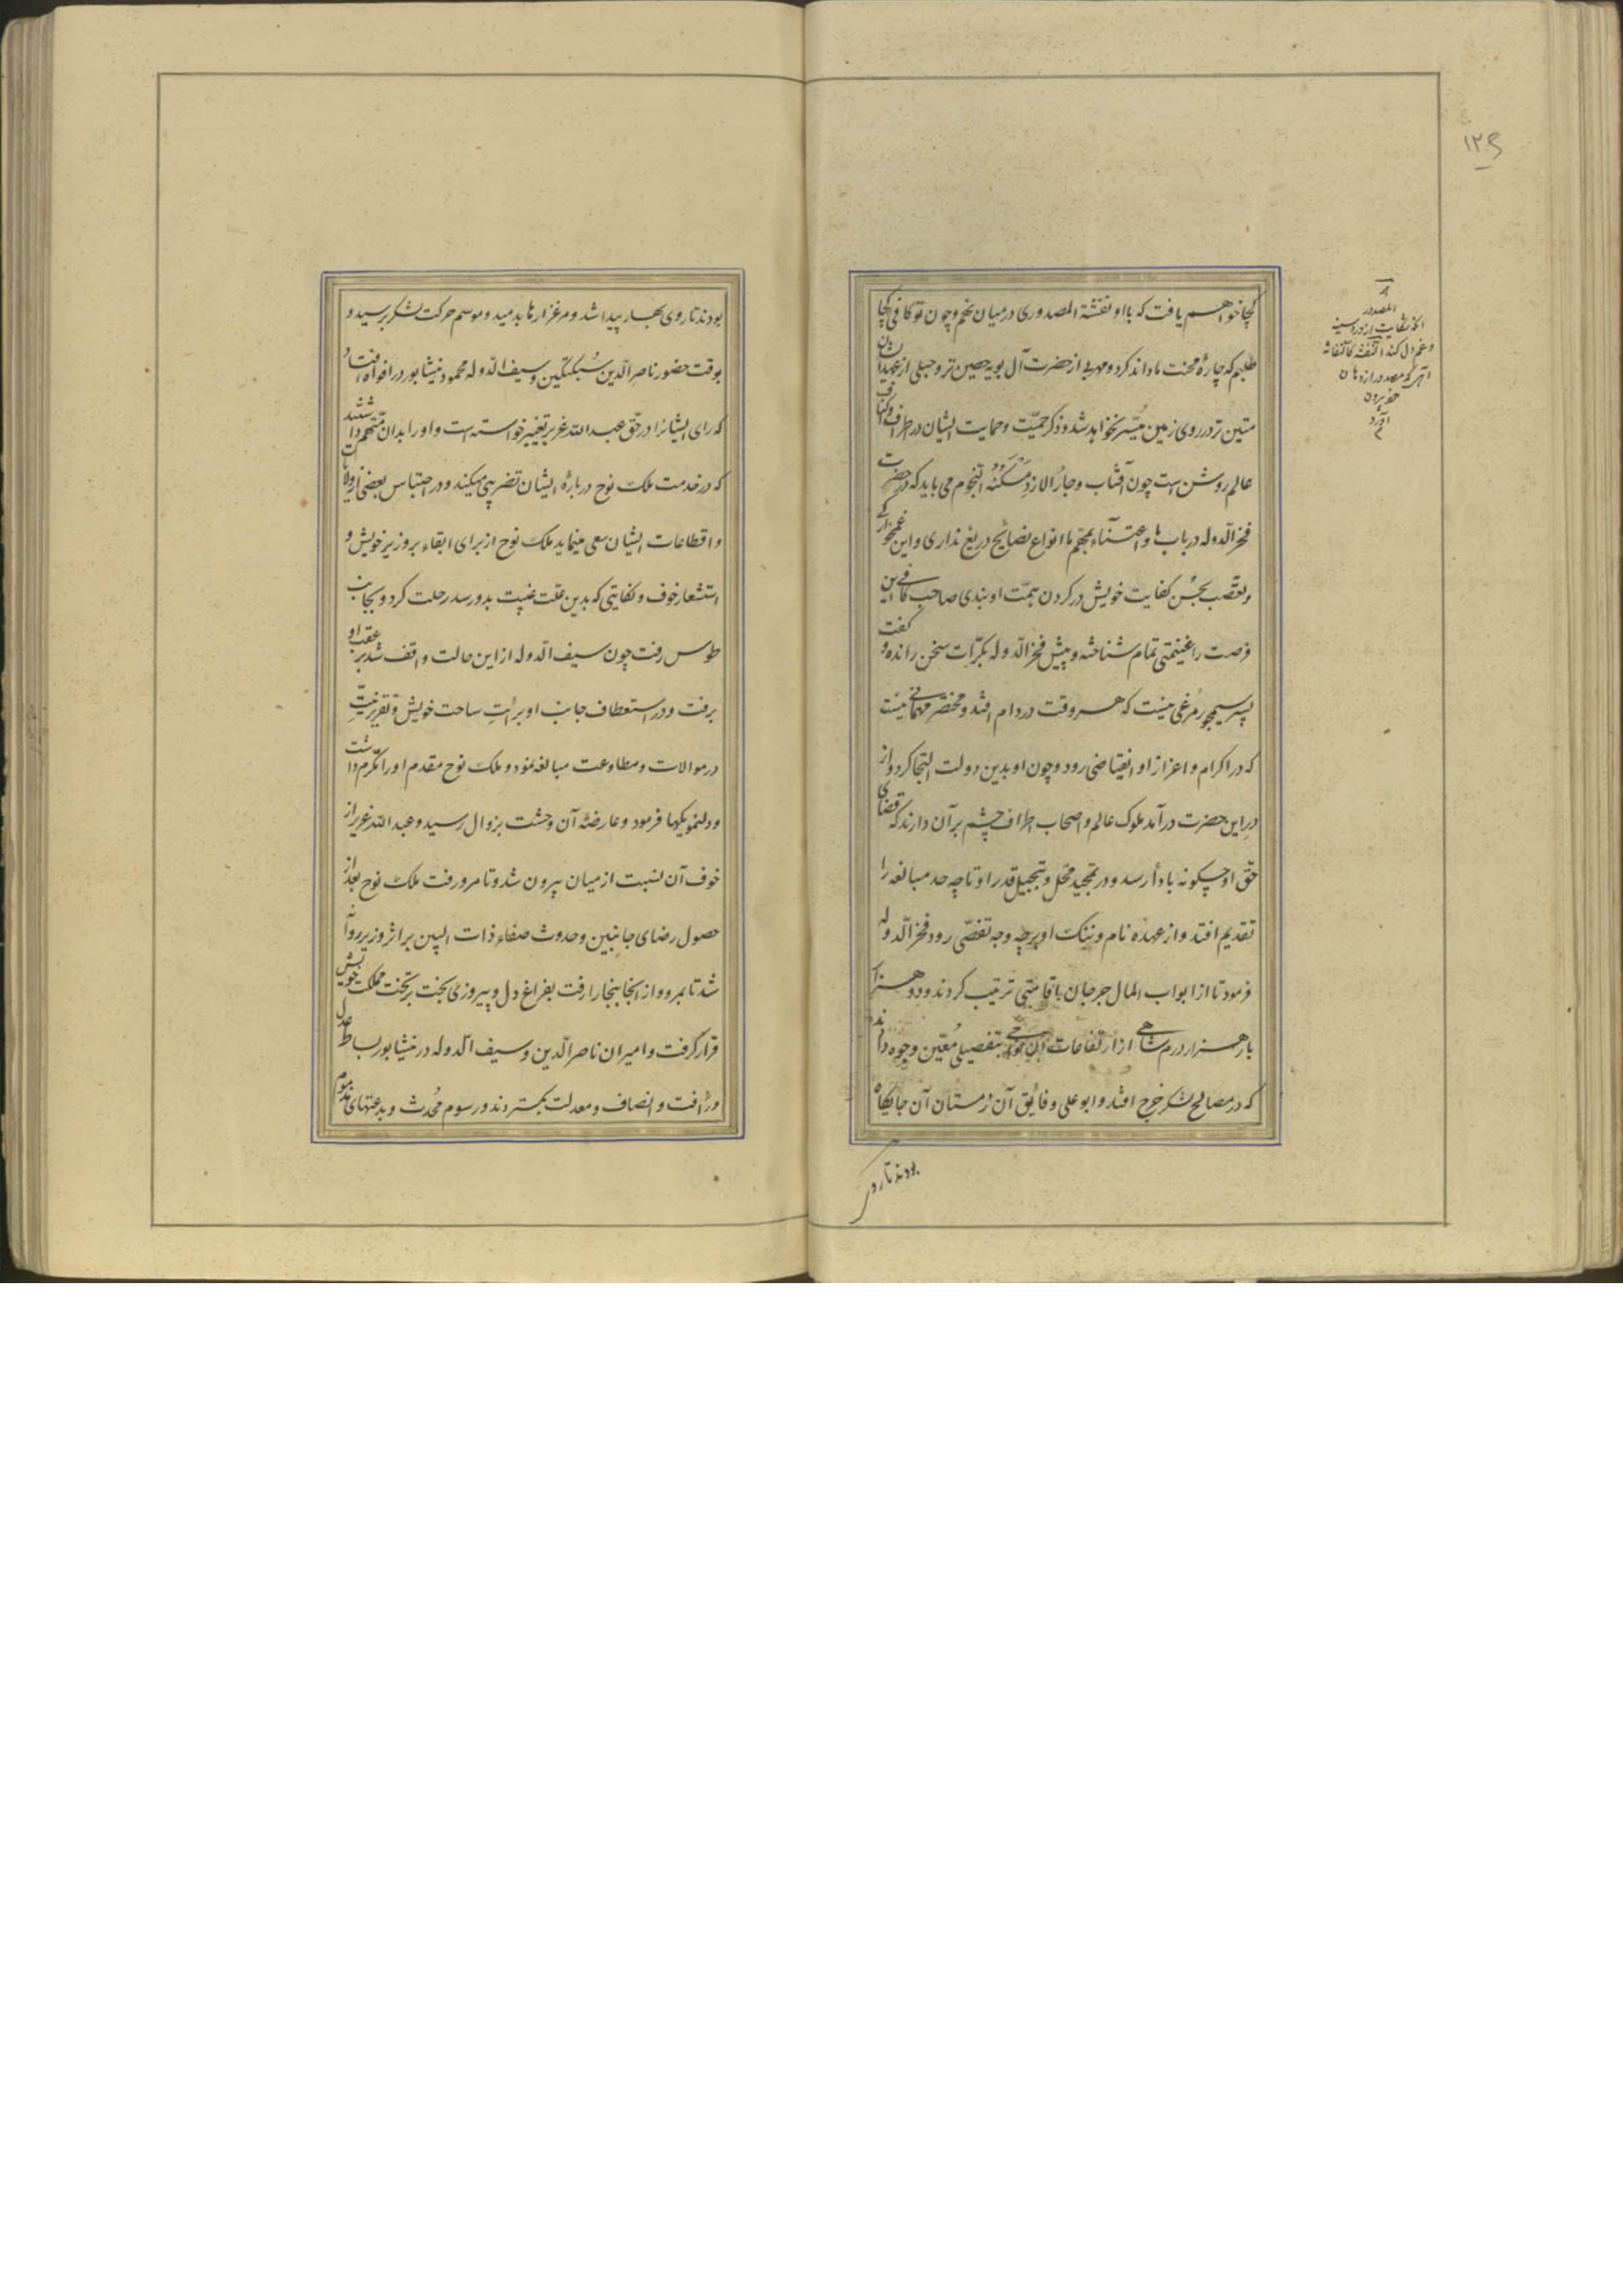 کجا خواهم یافت که با او نفثة المصدوری در میان نهم و چون تو کافی کجا
طلبم که چارهٔ محنت ما داند کرد و مهربی از حضرت آل بویه حصین‌تر و حبلی از عهد ایشان
متین‌تر در روی زمین میسّر نخواهد شد و ذکر حمیّت و حمایت ایشان در اطراف و اکناف
عالم روشن است چون آفتاب و جار الازد مسکنه النجوم می باید که در حضرت
فخر الدوله در باب ما و اعتناء بمهمّ ما انواع نصایح دریغ نداری و این غمخوارگی
و تعصّب بحسن کفایت خویش در گردن همّت او بندی صاحب کافی این
فرصت را غنیمتی تمام شناخته و پیش فخر الدوله بکرّات سخن رانده و گفت
پسر سیمجور مرغی نیست که هر وقت در دام افتد و مختصر مهمانی نیست
که در اکرام و اعزاز او انقباضی رود و چون او بدین دولت التجا کرد و از
در این حضرت درآمد ملوک عالم و اصحاب اطراف چشم بر آن دارند که قضای
حق او چگونه بادا رسد و در تمجید محل و تبجیل قدر او تا چه حد مبالغه را
تقدیم افتد و از عهدهٔ نام و ننک او بر چه وجه تفصّی رود فخر الدوله
فرمود تا از ابواب المال جرجان با قامتی ترتیب کردند و دو هزار
بار هزار درم شاهی از ارتفاعات آن نواحی بتفصیلی معیّن وجوه دادند
که در مصالح لشکر خرج افتد و ابو علی و فایق آن زمستان آن جایگاه
بودند تا رو
۱۲۹
المصدور
الذی
و غم دل کند النفثه کالنفاثه
آنچه که مصدور از دهان
خود بیرون
آورد
بودند تا روی بهار پیدا شد و مرغزارها بدمید و موسم حرکت لشکر برسید و
بوقت حضور ناصر الدین سبکتکین و سیف الدوله محمود بنیشابور در افواه افتاد
که رای ایشانرا در حق عبد الله عزیر تغییر خواسته است و او را بدان متهم داشتند
که در خدمت ملک نوح دربارهٔ ایشان تضریبی میکند و در احتباس بعضی از ولایات
و اقطاعات ایشان سعی مینماید ملک نوح از برای ابقاء بر وزیر خویش و
استشعار خوف و نکایتی که بدین علّت غیبت بدو رسد رحلت کرد و بجانب
طوس رفت چون سیف الدوله از این حالت واقف شد بر عقب او
برفت و در استعطاف جانب او و برائت ساحت خویش و تقریر نیّت
در موالات و مطاوعت مبالغه نمود و ملک نوح مقدم او را مکرّم داشت
و دلنمویکیها فرمود و عارضهٔ آن وحشت بزوال رسید و عبد الله عزیر از
خوف آن نسبت از میان بیرون شد و تا مرو رفت ملک نوح بعد از
حصول رضای جانبین و حدوث صفاء ذات البین بر اثر وزیر روان
شد تا بمرو و از آنجا ببخارا رفت بفراغ دل و پیروزی بخت بر تخت مملکت خویش
قرار گرفت و امیران ناصر الدین و سیف الدوله در نیشابور بساط عدل
و رأفت و انصاف و معدلت بگستردند و رسوم محدث و بدعتهای مذموم